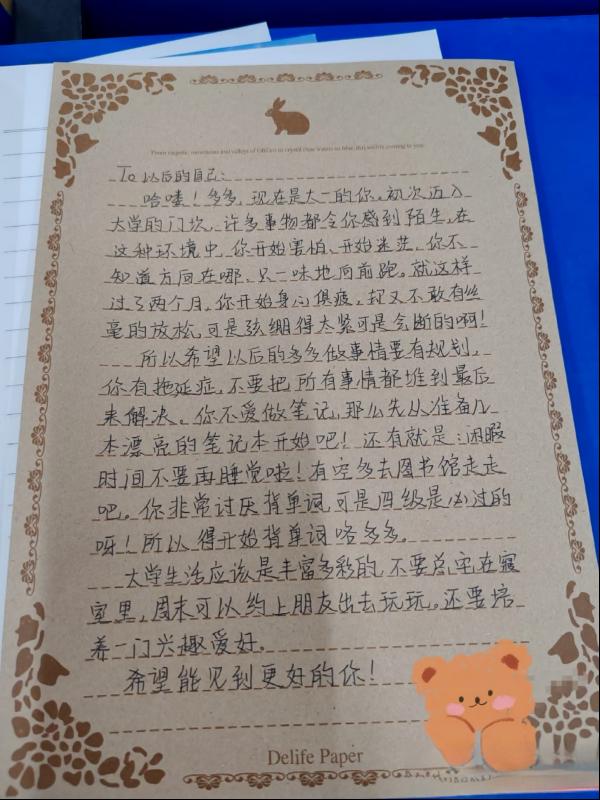 To 以后的自己：
哈喽！多多，现在是大一的你，初次迈入
大学的门坎，许多事物都令你感到陌生，在
这种环境中，你开始害怕、开始迷茫，你不
知道方向在哪，只一味地向前跑。就这样
过了两个月，你开始身心俱疲，却又不敢有丝
毫的放松，可是弦绷得太紧可是会断的啊！
所以希望以后的多多做事情要有规划，
你有拖延症，不要把所有事情都堆到最后
来解决。你不爱做笔记，那么先从准备几
本漂亮的笔记本开始吧！还有就是：闲暇
时间不要再睡觉啦！有空多去图书馆走走
吧。你非常讨厌背单词，可是四级是必过的
呀！所以得开始背单词咯多多。
大学生活应该是丰富多彩的，不要总宅在寝
室里，周末可以约上朋友出去玩玩。还要培
养一门兴趣爱好。
希望能见到更好的你！
Delife Paper